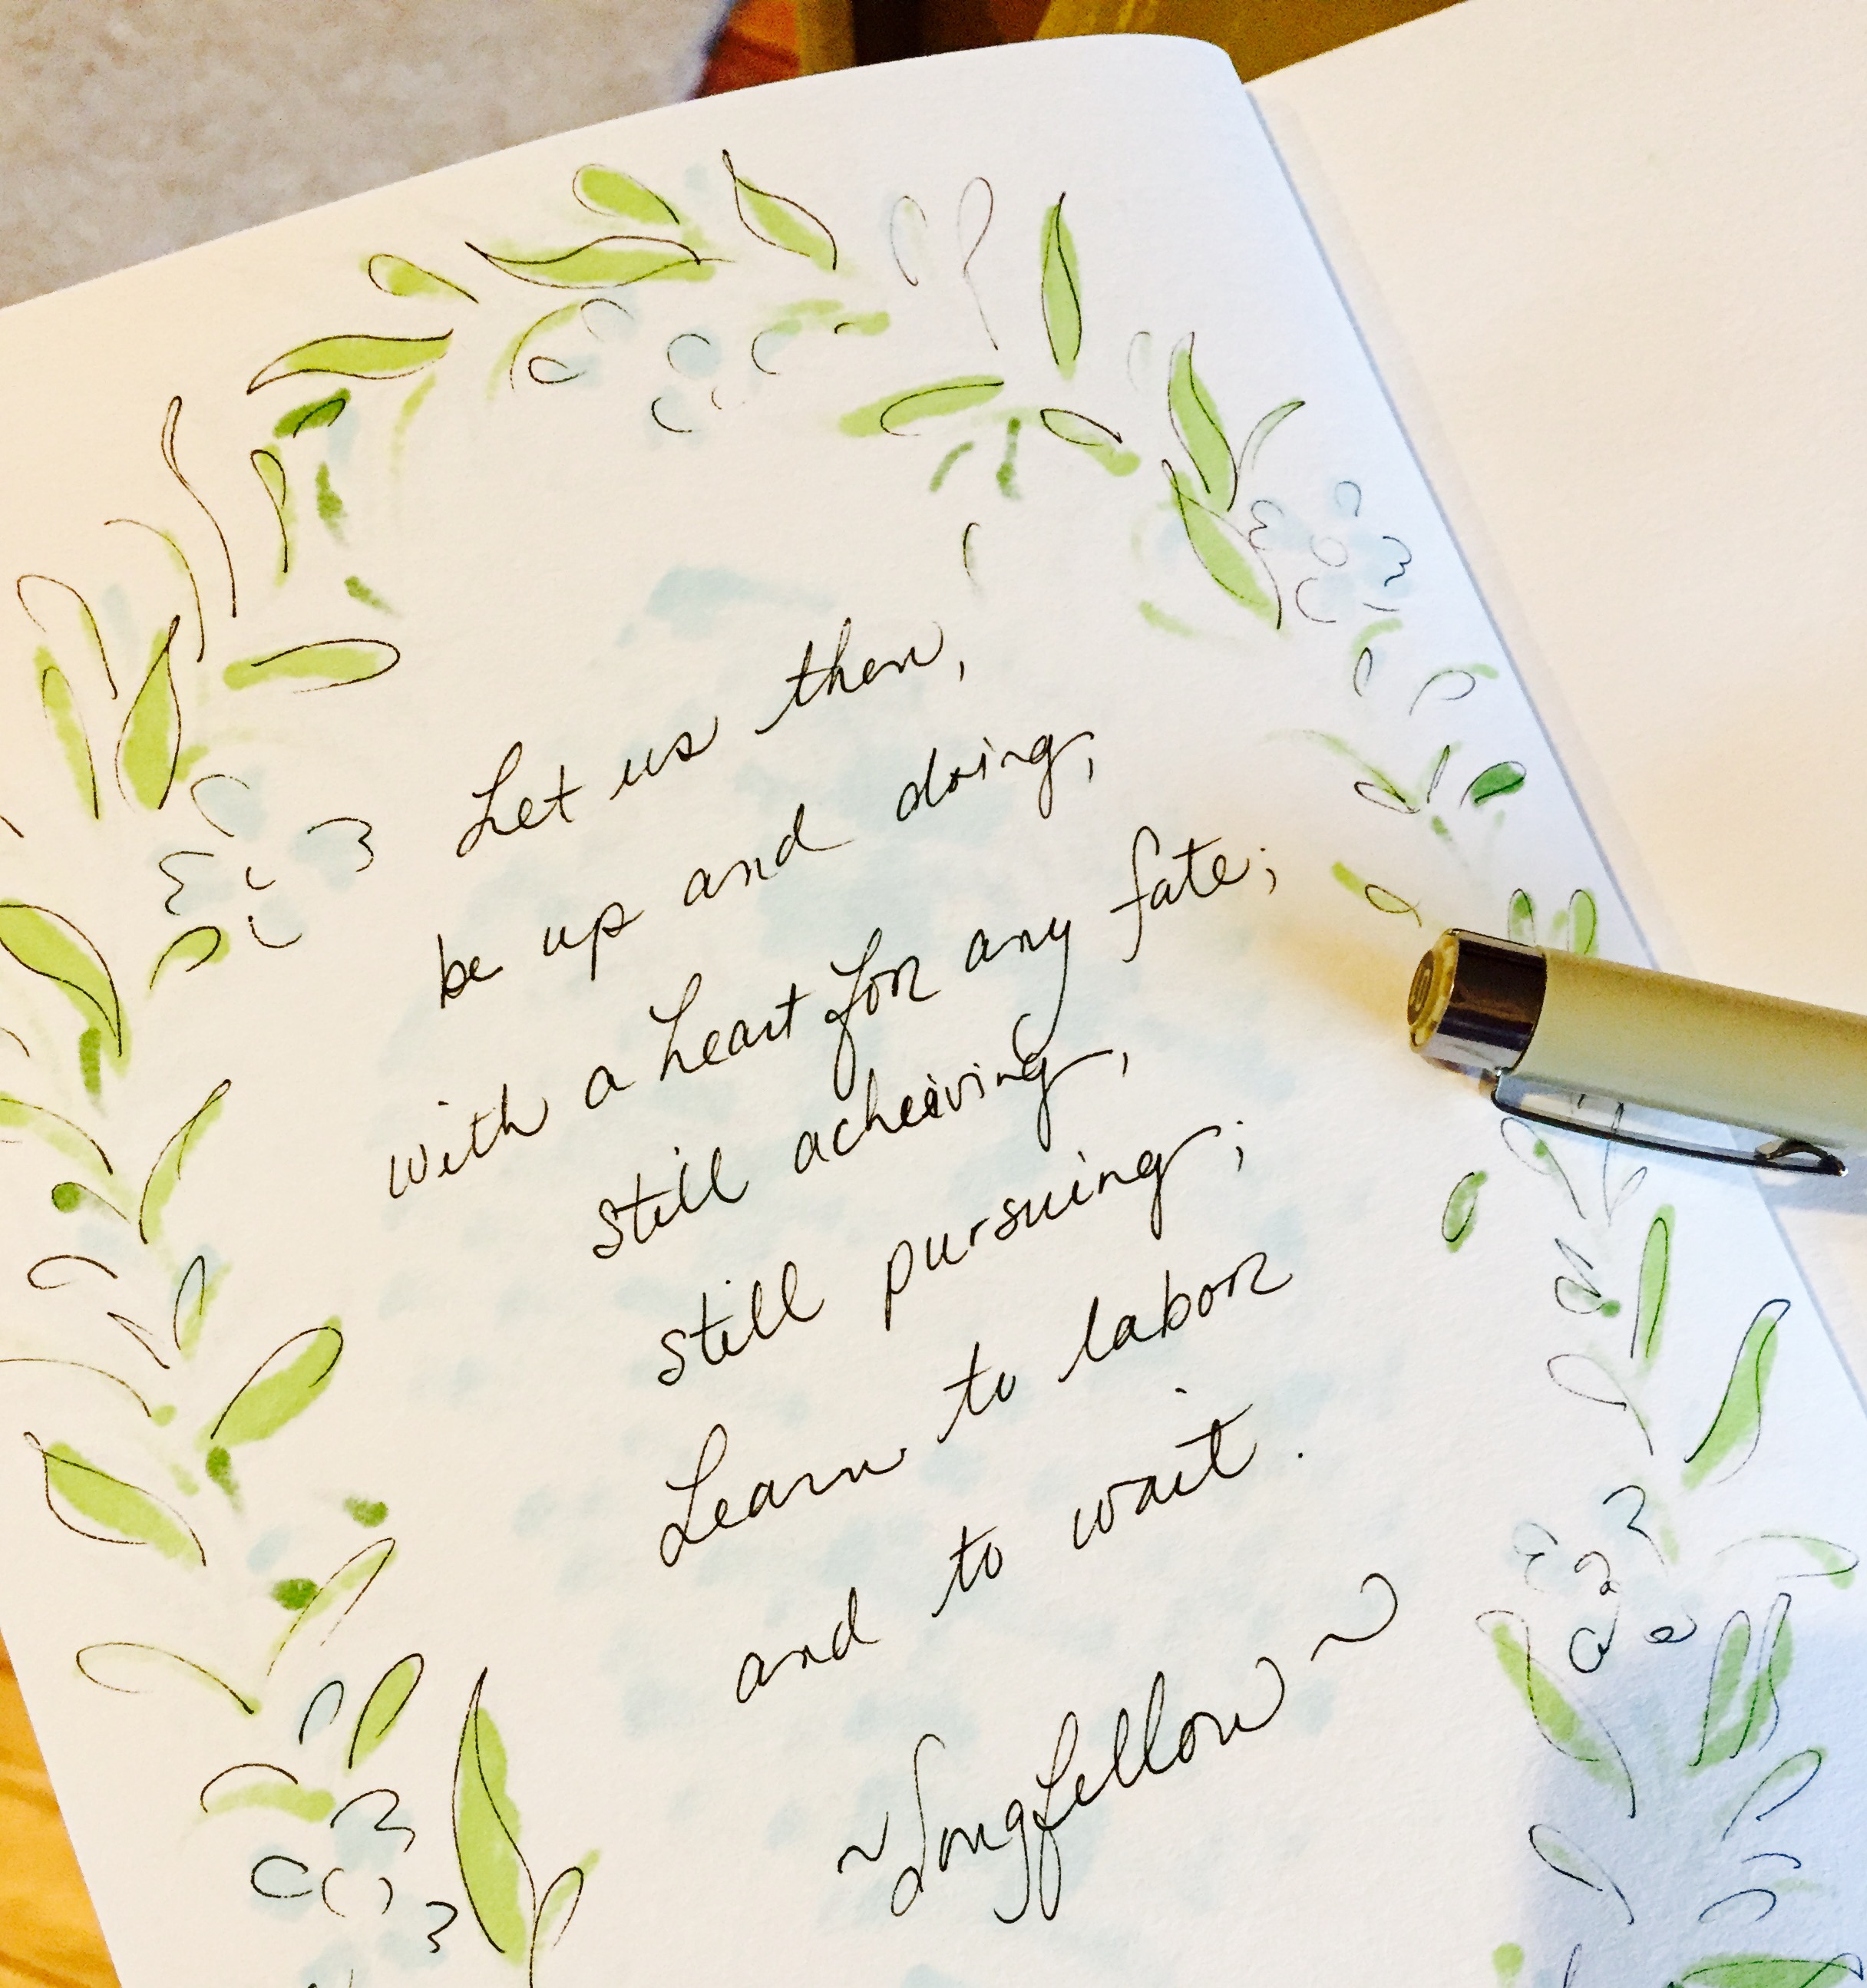 Let us then,
be up and doing,
with a heart for any fate;
still acheiving,
still pursuing;
Learn to labor
and to wait.
~Longfellow~